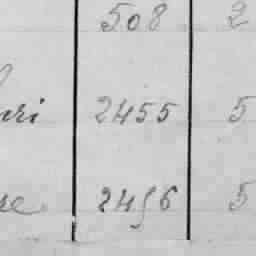 508 2
2455 5
2456 5